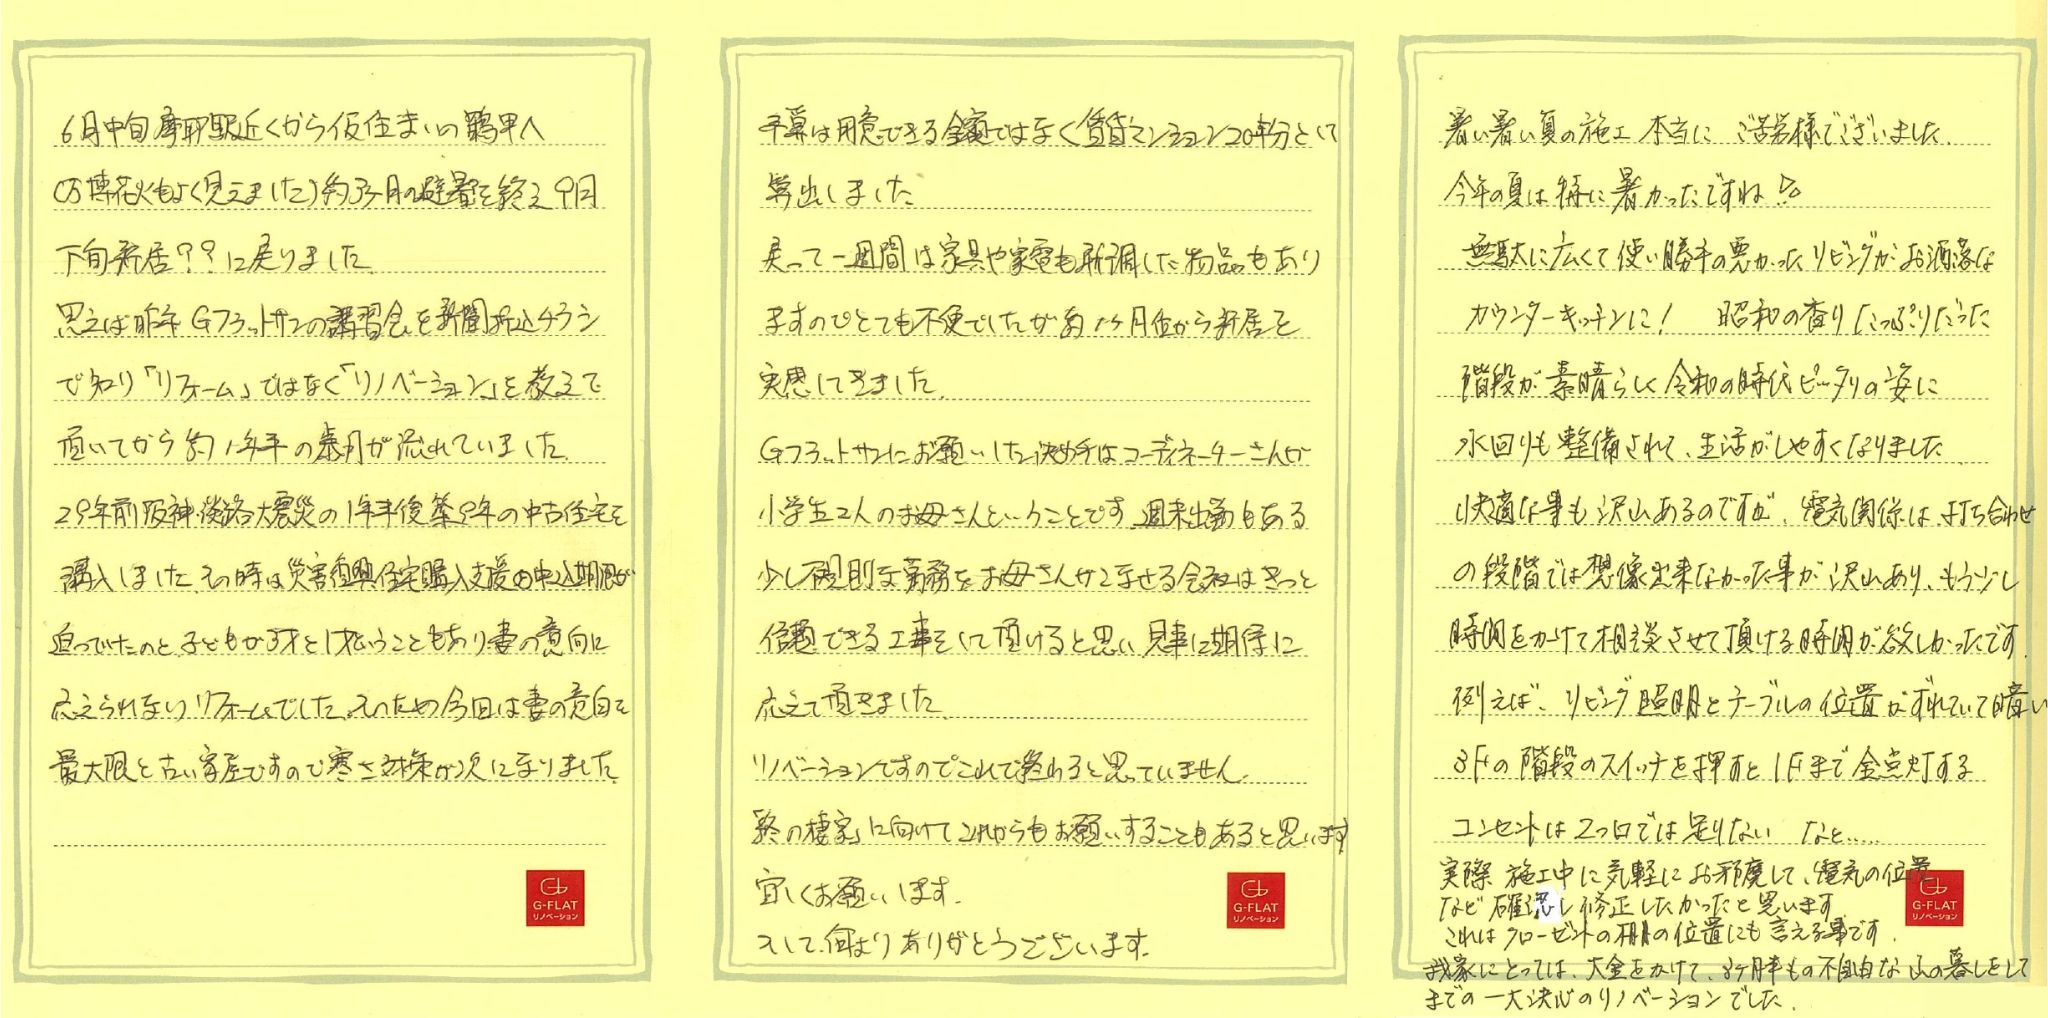 6月中旬摩耶駅近くから仮住まいの鶴甲へ
(万博花火もよく見えました)約3ヶ月の避暑を終え9月
下旬新居??に戻りました
思えば昨年Gフラットサンの講習会を新聞折込チラシ
で知り「リフォーム」ではなく「リノベーション」を教えて
頂いてから約1年半の歳月が流れていました
29年前阪神淡路大震災の1年半後築9年の中古住宅を
購入しました その時は災害復興住宅購入支援の申込期限が
迫っていたのと子どもが3才と1才ということもあり妻の意向に
応えられないリフォームでした そのため今回は妻の意向を
最大限と古い家屋ですので寒さ対策が次になりました
G-FLAT
リノベーション
予算は用意できる金額ではなく賃貸マンション20年分として
算出しました
戻って一週間は家具や家電も新調した物品もあり
ますのでとても不便でしたが約1ヶ月位から新居を
実感してきました
Gフラットサンにお願いした決め手はコーディネーターさんが
小学生2人のお母さんということです 週末出勤もある
少し不規則な勤務をお母さんサンにさせる会社はきっと
信題できる工事をして頂けると思い見事に期待に
応えて頂きました
リノベーションですのでこれで終わると思っていません
「終の棲家」に向けてこれからもお願いすることもあると思います
宜しくお願いします.
そして何よりありがとうございます.
G-FLAT
リノベーション
暑い暑い夏の施工本当にご苦労様でございました
今年の夏は特に暑かったですね
無駄に広くて使い勝手の悪かったリビングがお洒落な
カウンターキッチンに! 昭和の香りたっぷりだった
階段が素晴らしく令和の時代ピッタリの姿に
水回りも整備されて、生活がしやすくなりました
快適な事も沢山あるのですが、電気関係は打ち合わせ
の段階では想像出来なかった事が沢山あり、もう少し
時間をかけて相談させて頂ける時間が欲しかったです.
例えば、リビング照明とテーブルの位置がずれていて暗い
3Fの階段のスイッチを押すと1Fまで全点灯する
コンセントは2つ口では足りない など.....
実際施工中に気軽にお邪魔して、電気の位置
など確認し修正したかったと思います
これはクローゼットの棚の位置にも言える事です.
我家にとっては、大金をかけて、3ヶ月半もの不自由な山の暮しをして
までの一大決心のリノベーションでした.
G-FLAT
リノベーション